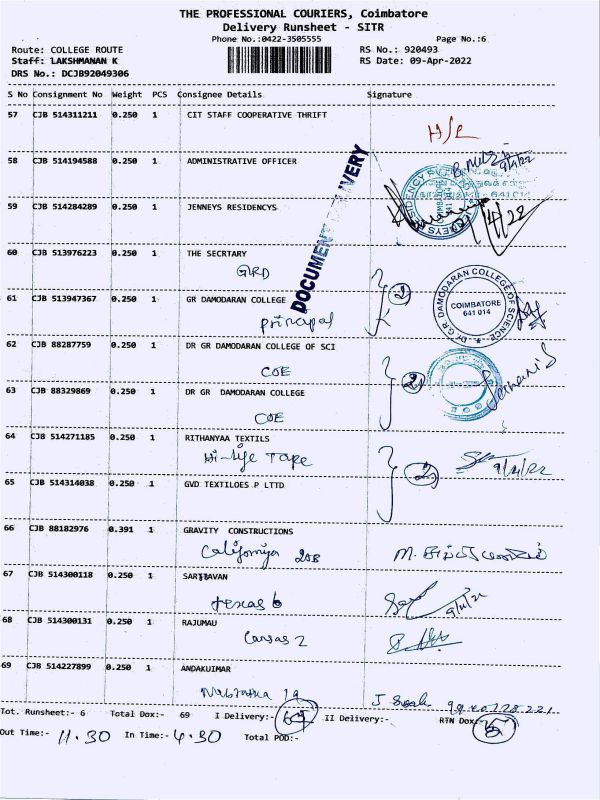 THE PROFESSIONAL COURIERS, Coimbatore
Delivery Runsheet - SITR
Phone No.:0422-3505555 Page No.:6
Route: COLLEGE ROUTE RS No.: 920493
Staff: LAKSHMANAN K RS Date: 09-Apr-2022
DRS No.: DCJB92049306
S No Consignment No Weight PCS Consignee Details Signature
57 CJB 514311211 0.250 1 CIT STAFF COOPERATIVE THRIFT
58 CJB 514194588 0.250 1 ADMINISTRATIVE OFFICER
9/4/22
DOCUMENT DELIVERY
59 CJB 514284289 0.250 1 JENNEYS RESIDENCYS
60 CJB 513976223 0.250 1 THE SECRTARY
GRD
61 CJB 513947367 0.250 1 GR DAMODARAN COLLEGE
Principal
2
Dr.G.R. DAMODARAN COLLEGE OF SCIENCE
COIMBATORE
641 014
62 CJB 88287759 0.250 1 DR GR DAMODARAN COLLEGE OF SCI
COE
2
63 CJB 88329869 0.250 1 DR GR DAMODARAN COLLEGE
COE
64 CJB 514271185 0.250 1 RITHANYAA TEXTILS
Hi-life Tape
2
9/4/22
65 CJB 514314038 0.250 1 GVD TEXTILOES P LTTD
66 CJB 88182976 0.391 1 GRAVITY CONSTRUCTIONS
California 208
67 CJB 514300118 0.250 1
texas 6
9/4/22
68 CJB 514300131 0.250 1 RAJUMAU
Cansas 2
69 CJB 514227899 0.250 1 ANDAKUIMAR
19
Tot. Runsheet:- 6 Total Dox:- 69 I Delivery:- II Delivery:- RTN Dox:-
Out Time:- 11.30 In Time:- 4.30 Total POD:-